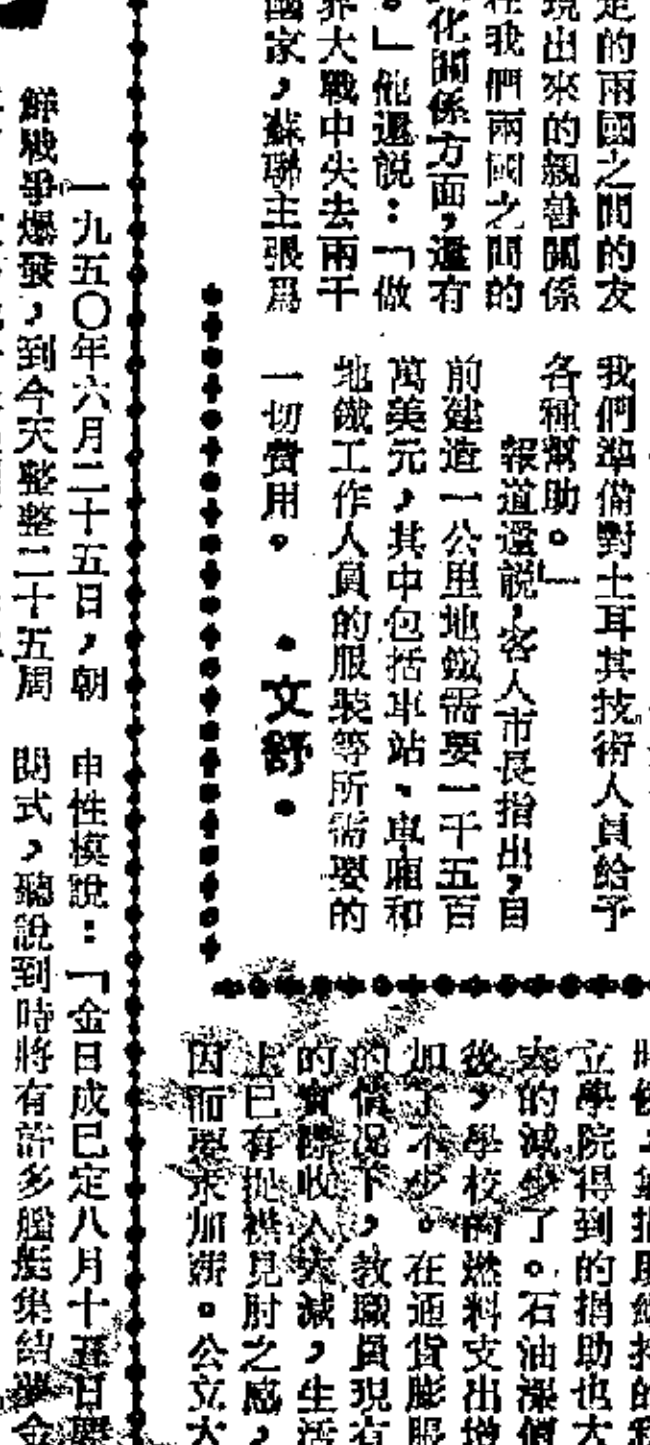 定的兩國之間的友
現出來的親善關係
在我們兩國之間的
化關係方面，還有
。」他還說：「做
界大戰中失去兩千
國家，蘇聯主張爲
我們準備對土耳其技術人員給予
各種幫助。」
報道還說，客人市長指出，目
前建造一公里地鐵需要一千五百
萬美元，其中包括車站、車廂和
地鐵工作人員的服裝等所需要的
一切費用。
・文舒・
立學院得到的捐助也大
大的減少了。石油漲價
後，學校的燃料支出增
加了不少。在通貨膨脹
的情況下，教職員現有
的實際收入大減，生活
上已有捉襟見肘之感，
因而要求加薪。公立大
一九五〇年六月二十五日，朝
鮮戰爭爆發，到今天整整二十五周
申性模說：「金日成已定八月十五日
閱式，聽說到時將有許多艦艇集結